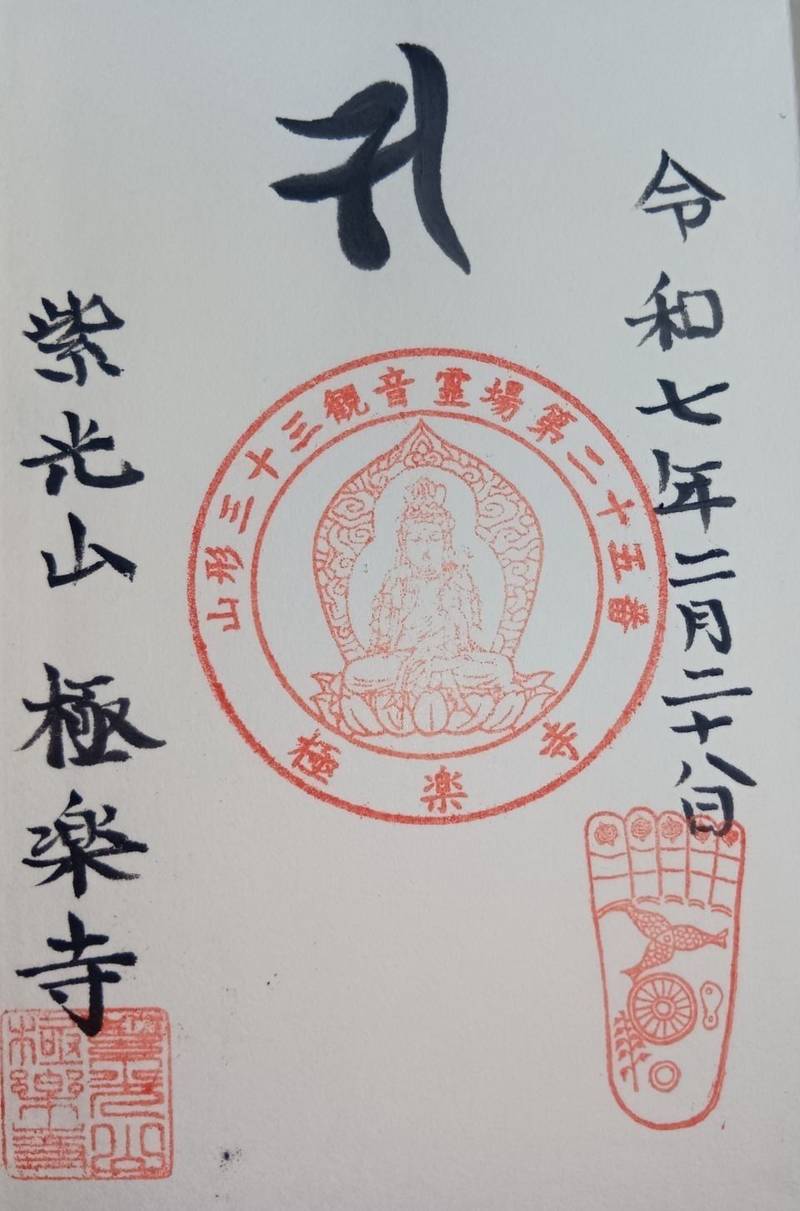 令和七年二月二十八日
山形三十三観音霊場第二十五番
極楽寺
紫光山 極楽寺
紫光山
極楽寺